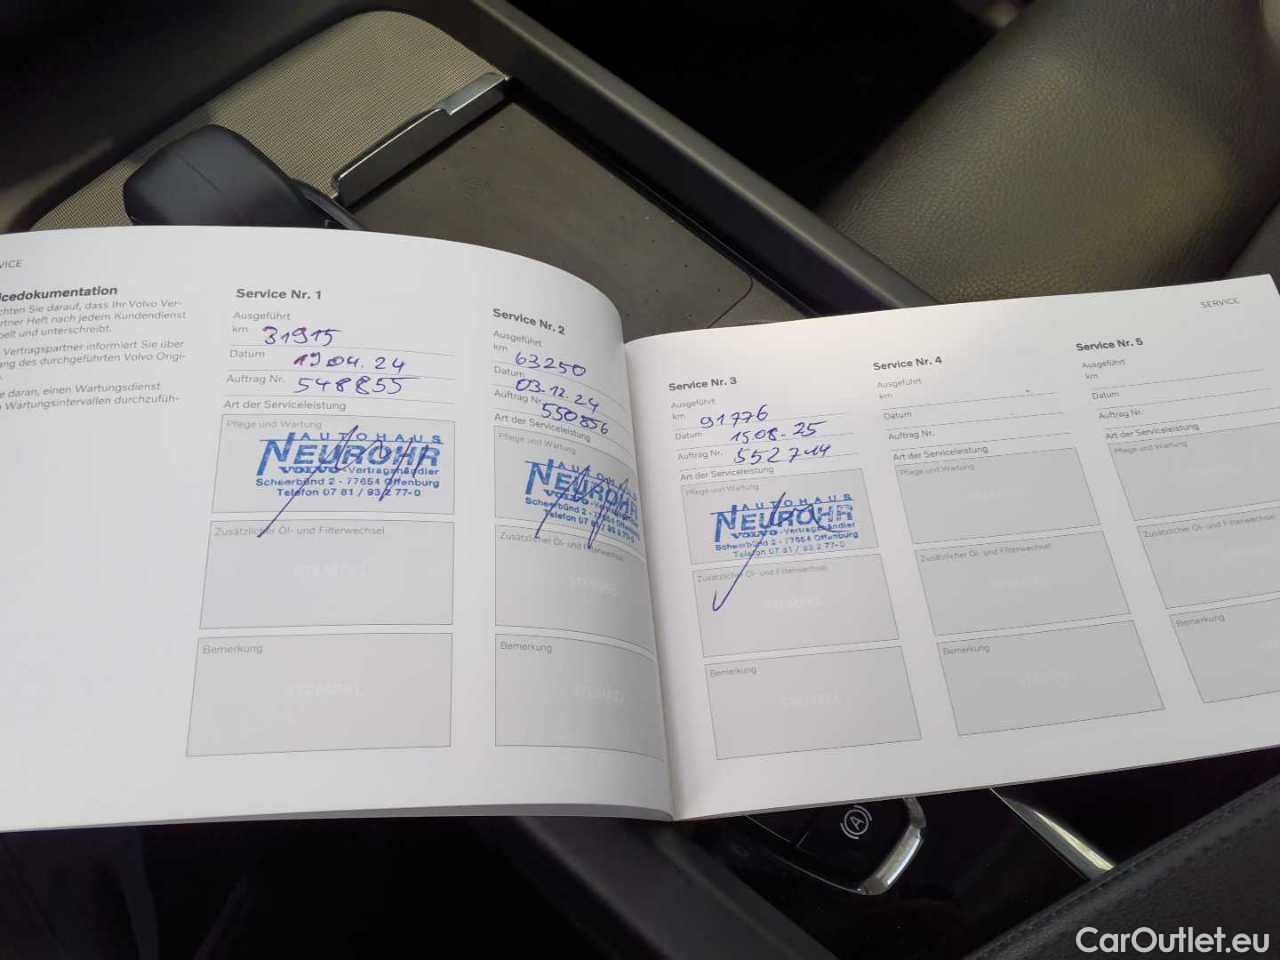 VICE
icedokumentation
chten Sie darauf, dass Ihr Volvo Ver-
rtner Heft nach jedem Kundendienst
pelt und unterschreibt.
Vertragspartner informiert Sie über
ang des durchgeführten Volvo Origi-
e daran, einen Wartungsdienst
n Wartungsintervallen durchzufüh-
Service Nr. 1
Ausgeführt
km 31915
Datum 19.04.24
Auftrag Nr. 548855
Art der Serviceleistung
Pflege und Wartung
AUTOHAUS
NEUROHR
VOLVO-Vertragshändler
Scheerbünd 2 - 77654 Offenburg
Telefon 07 81 / 93 2 77-0
Zusätzlicher Öl- und Filterwechsel
STEMPEL
Bemerkung
STEMPEL
Service Nr. 2
Ausgeführt
km 63250
Datum 03.12.24
Auftrag Nr. 550856
Art der Serviceleistung
Pflege und Wartung
AUTOHAUS
NEUROHR
VOLVO-Vertragshändler
Scheerbünd 2 - 77654 Offenburg
Telefon 07 81 / 93 2 77-0
Zusätzlicher Öl- und Filterwechsel
STEMPEL
Bemerkung
STEMPEL
SERVICE
Service Nr. 3
Ausgeführt
km 91776
Datum 15.08.25
Auftrag Nr.
Art der Serviceleistung
Pflege und Wartung
AUTOHAUS
NEUROHR
VOLVO-Vertragshändler
Scheerbünd 2 - 77654 Offenburg
Telefon 07 81 / 93 2 77-0
Zusätzlicher Öl- und Filterwechsel
STEMPEL
Bemerkung
STEMPEL
Service Nr. 4
Ausgeführt
km
Datum
Auftrag Nr.
Art der Serviceleistung
Pflege und Wartung
Zusätzlicher Öl- und Filterwechsel
Bemerkung
Service Nr. 5
Ausgeführt
km
Datum
Auftrag Nr.
Art der Serviceleistung
Pflege und Wartung
Zusätzlicher Öl- und Filterwechsel
Bemerkung
(A)
CarOutlet.eu